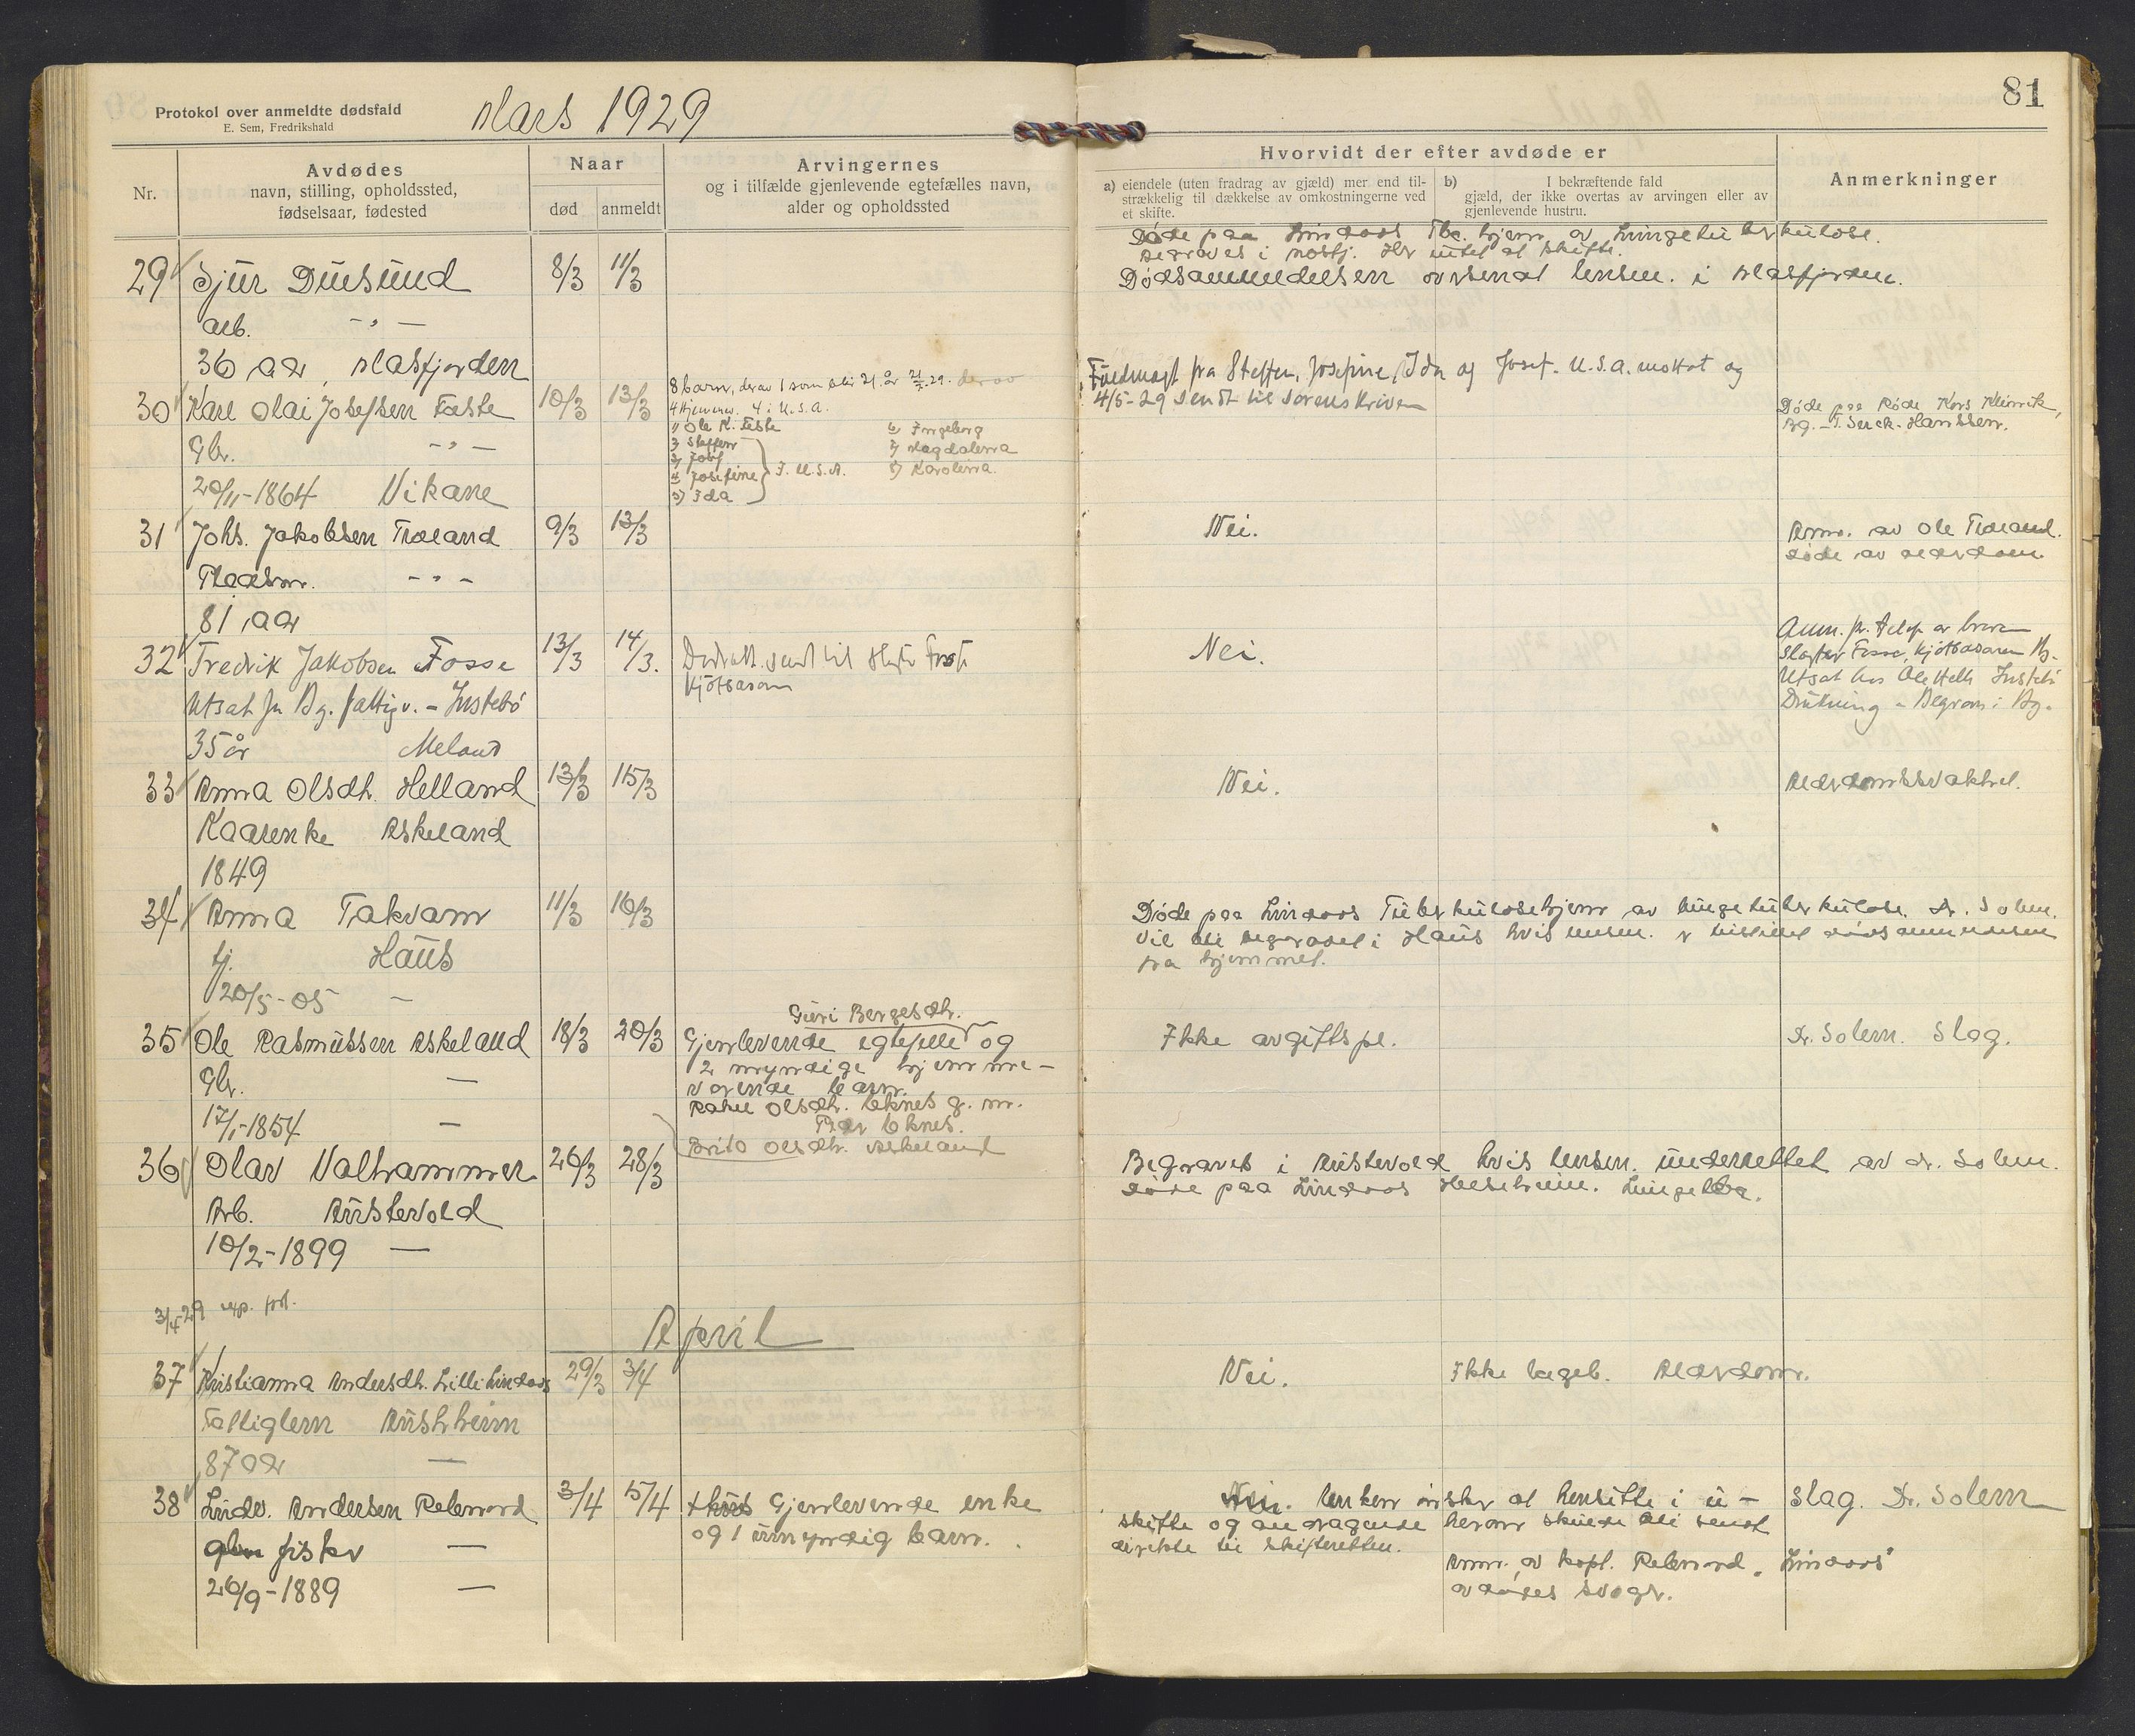 Protokol over anmeldte dødsfald
E. Sem, Fredrikshald
Mars 1929
81
Nr.
Avdødes
navn, stilling, opholdssted,
fødselsaar, fødested
Naar
død
anmeldt
Arvingernes
og i tilfælde gjenlevende egtefælles navn,
alder og opholdssted
Hvorvidt der efter avdøde er
a) eiendele (uten fradrag av gjæld) mer end til-
strækkelig til dækkelse av omkostningerne ved
et skifte.
b) I bekræftende fald
gjæld, der ikke overtas av arvingen eller av
gjenlevende hustru.
Anmerkninger
29 Sjur Dusund 8/3 11/3
arb. - " -
36 aar, Masfjorden
Døde paa Lindaas Tbc. hjem av Lungetuberkulose.
Begraves i Mosfj. Her intet at skifte.
Dødsanmeldelsen oversendt lensm. i Masfjorden.
30 Karl Olai Josefsen Feste 10/3 13/3
Gbr. - " -
20/11-1864 Vikane
8 barn, derav 1 som blir 21 år 29. derav
4 hjemmev. 4 i U.S.A.
1) Ole K. Feste
2) Steffen
3) Josef
4) Josefine
5) Ida
I. U.S.A.
6) Ingeborg
7) Magdalena
8) Karolina.
Fuldmagt fra Steffen, Josefine, Ida og Josef. U.S.A. mottat og
4/5-29 sendt til Sorenskriven
Døde paa Røde Kors Klinik,
Bg. - T. Serck-Hanssen.
31 Johs. Jakobsen Træland 9/3 13/3
Pladsm. - " -
81 aar
Nei.
Anm. av Ole Træland.
Døde av alderdom
32 Fredrik Jakobsen Fosse 13/3 14/3.
Utsat fr. Bg. fattigv. - Justebø
35 år Meland
Dødsatt. sendt til Slagter Fosse
Kjøtbasaren
Nei.
Anm. pr. telef av broren
Slagter Fosse, Kjøtbasaren Bg.
Utsat hos Ole Justebø
Drukning - Begraves i Bg.
33 Anna Olsdtr. Helland 13/3 15/3
Kaarenke Askeland
1849
Nei.
Alderdomssvakhet.
34 Anna Takvam 11/3 16/3
tj. Haus
20/5-05 -
Døde paa Lindaas Tuberkulosehjem av lungetuberkulose. Dr. Solem.
Vil bli begravet i Haus hvis lensm. er tilstillet dødsanmeldelsen
fra hjemmet.
35 Ole Rasmussen Askeland 18/3 20/3
Gbr. -
17/1-1854 -
Guri Bergesdtr.
Gjenlevende egtefelle og
2 myndige hjemme-
værende barn.
Rahel Olsdtr. Eknes g. m.
Peder Eknes.
Brita Olsdtr. Askeland
Ikke avgiftspl.
Dr. Solem. Slag.
36 Olav Valhammer 26/3 28/3
Arb. Austevold
10/2-1899 -
Begraves i Austevold hvis lensm. underrettet av dr. Solem.
Døde paa Lindaas Helseheim. Lungetbc.
3/4-29 rep. prot.
April
37 Kristianna Andersdtr. Lille Lindaas 29/3 3/4
Fattiglem Austrheim
87 aar -
Nei.
Ikke lægeb. Alderdom.
38 Ludv. Andersen Rebnord 3/4 15/4
gbr. fisker -
26/9-1889 -
+ hus Gjenlevende enke
og 1 umyndig barn.
Nei. Enken ønsker at hensitte i u-
skifte og andragende herom skulde bli sendt
direkte til skifteretten.
Anm. av kapt. Rebnord, "Lindaas"
avdødes svoger.
Slag. Dr. Solem